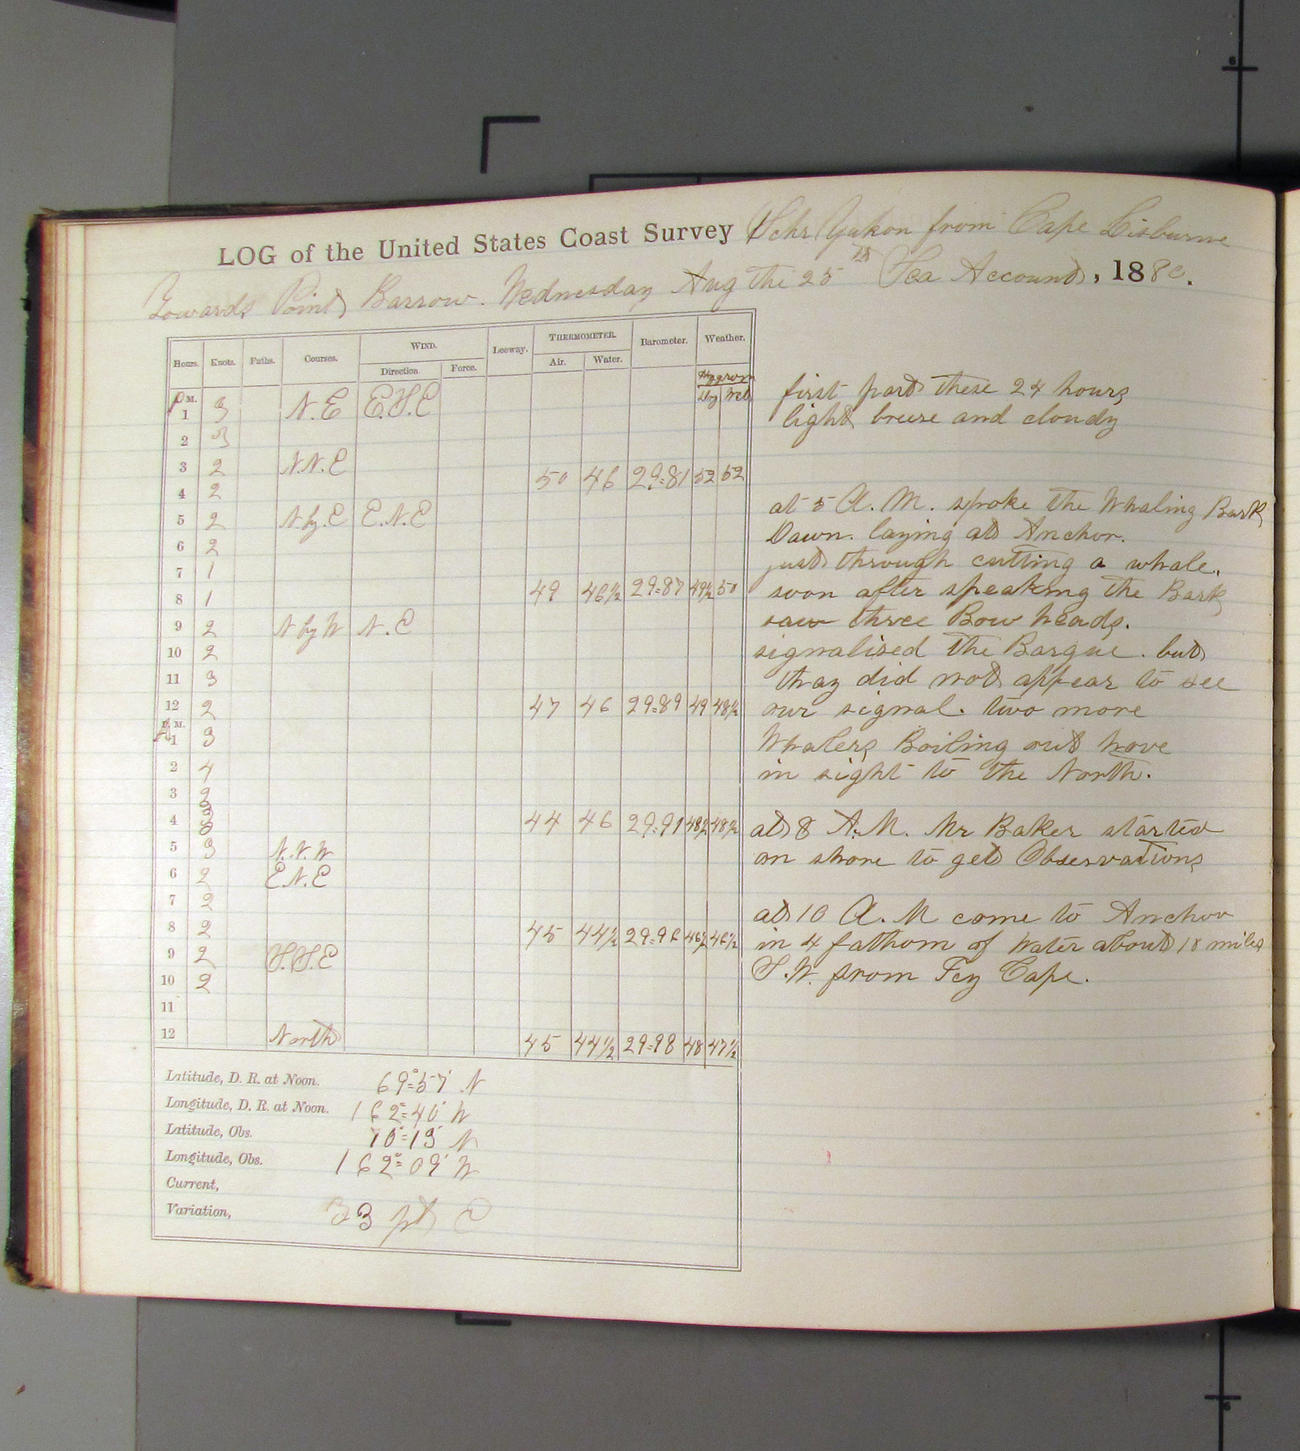 LOG of the United States Coast Survey Schr Yukon from Cape Lisburne
Towards Point Barrow. Wednesday Aug the 25th Sea Account, 1880.
Hours. Knots. Faths. Courses. WIND. Leeway. THERMOMETER. Barometer. Weather.
Direction. Force. Air. Water.
Hygrom
Dry Wet
P M.
1 3 N.E E.S.E
2 3
3 2 N.N.E 50 46 29=81 52 52
4 2
5 2 N by E E.N.E
6 2
7 1
8 1 49 46½ 29=87 49½ 50
9 2 N by W N.E
10 2
11 3
12 2 47 46 29=89 49 48½
A M.
1 3
2 4
3 2
4 3 44 46 29=91 48½ 48½
5 3 N.N.W
6 2 E.N.E
7 2
8 2 45 44½ 29=96 46½ 46½
9 2 S.S.E
10 2
11
12 North 45 44½ 29=98 48 47½
Latitude, D. R. at Noon. 69°=57' N
Longitude, D. R. at Noon. 162°=40' W
Latitude, Obs. 70°=13' N
Longitude, Obs. 162°=09' W
Current,
Variation, 3 pt E
first part these 24 hours
light breese and cloudy
at 5 A.M. spoke the Whaling Bark
Dawn. laying at Anchor.
just through cutting a whale.
soon after speaking the Bark
saw three Bow heads.
signalised the Barque. but
thay did not appear to see
our signal. two more
Whalers Boiling out hove
in sight to the North.
at 8 A.M. Mr Baker started
on shore to get Observations
at 10 A.M come to Anchor
in 4 fathom of Water about 18 miles
S.W. from Icy Cape.